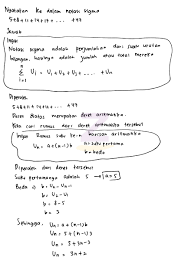 Nyatakan ke dalam notasi sigma
5+8+11+14+17+ ... +47
Jawab
Ingat
Notasi sigma adalah penjumlahan dari suatu urutan
bilangan, hasilnya adalah jumlah atau total mereka
n
Σ Ui = U1 + U2 + U3 + ... + Un
i=1
Diperoleh
5+8+11+14+17+ ... +47
Deret diatas merupakan deret aritmatika.
Kita cari rumus dari deret aritmatika tersebut
Ingat Rumus suku ke-n barisan aritmatika
Un = a+(n-1)b
a = suku pertama
b = beda
Diperoleh dari deret tersebut
Suku pertamanya adalah 5 → a=5
Beda → b = Un - Un-1
b = U2 - U1
b = 8-5
b = 3
Sehingga, Un = a+(n-1)b
Un = 5+(n-1)3
Un = 5+3n-3
Un = 3n+2